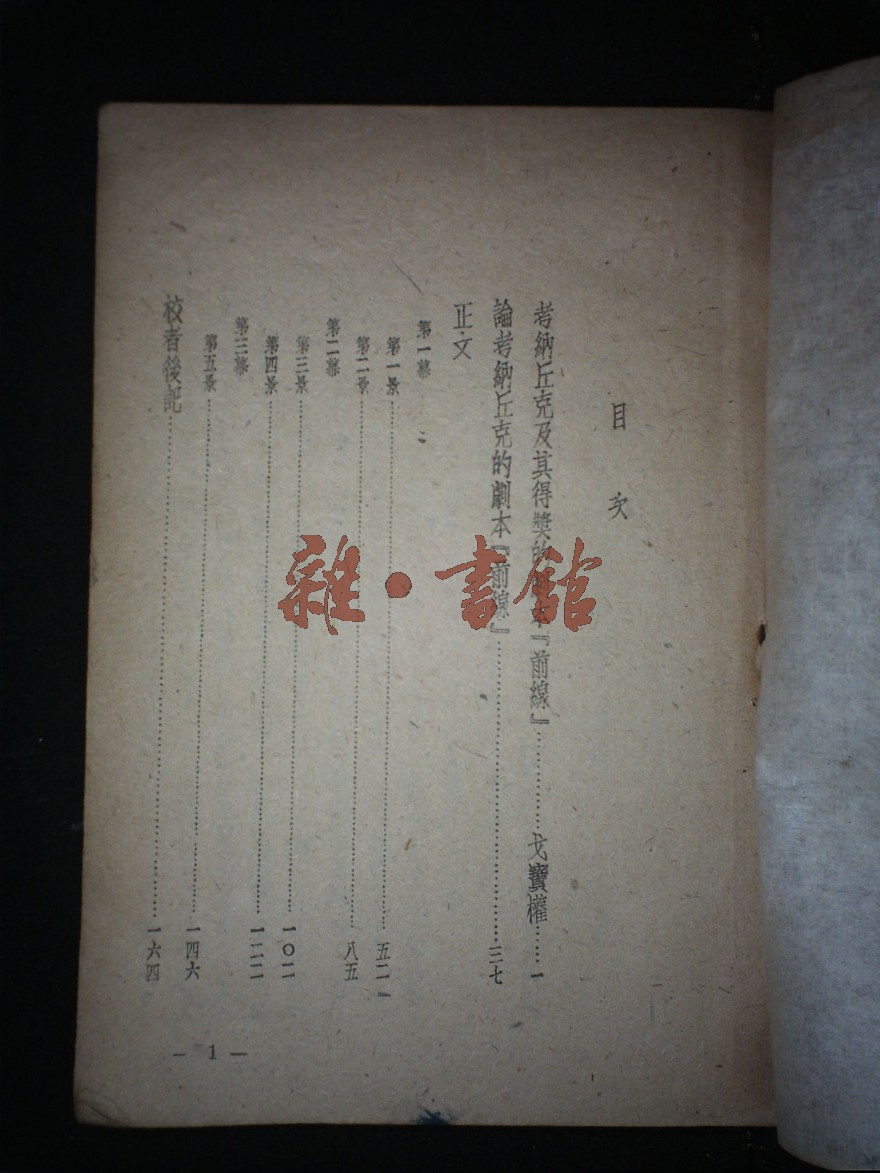 目次
考納丘克及其得獎的劇本『前線』……………戈寶權……一
論考納丘克的劇本『前線』……………………………三七
正文
第一幕
第一景……………………………………………五二
第二景……………………………………………八五
第二幕
第三景……………………………………………一〇二
第四景……………………………………………一二二
第三幕
第五景……………………………………………一四六
校者後記…………………………………………一六四
— 1 —
雜·書館